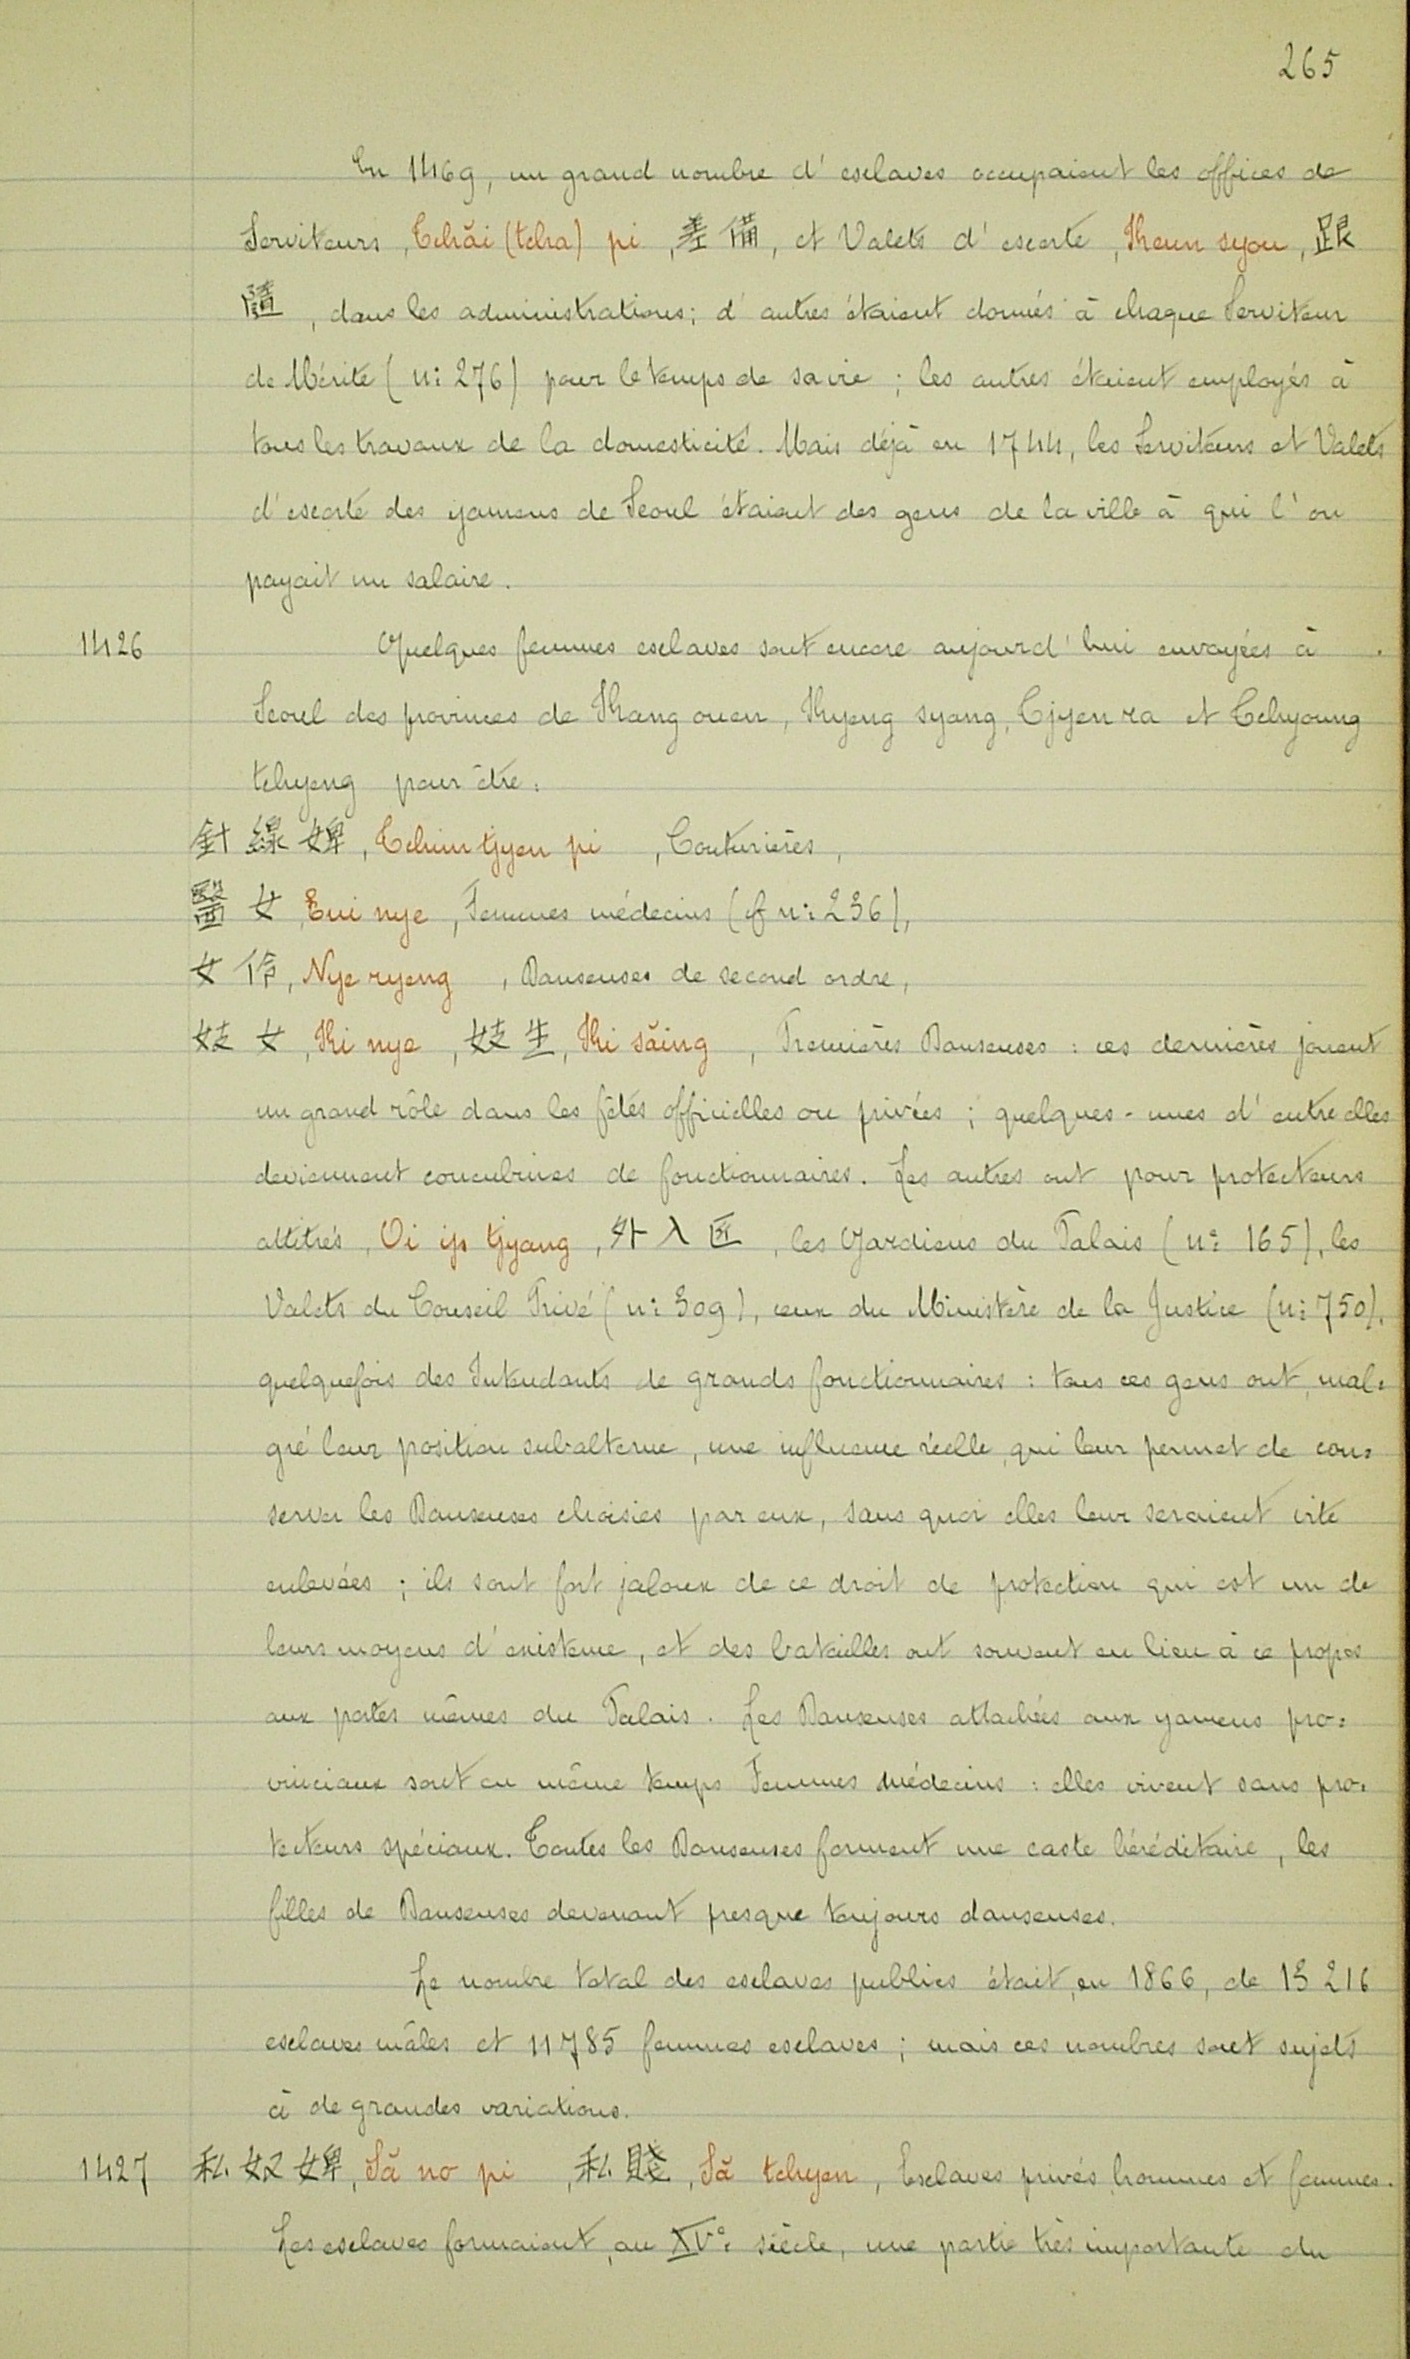 265
En 1469, un grand nombre d'esclaves occupaient les offices de
Serviteurs, Tchăi (tcha) pi, 差備, et Valets d'escorte, Keun syou, 跟
隨, dans les administrations; d'autres étaient donnés à chaque Serviteur
de Mérite (nº 276) pour le temps de sa vie; les autres étaient employés à
tous les travaux de la domesticité. Mais déjà en 1744, les Serviteurs et Valets
d'escorte des yamens de Seoul étaient des gens de la ville à qui l'on
payait un salaire.
1426 Quelques femmes esclaves sont encore aujourd'hui envoyées à
Seoul des provinces de Kang ouen, Kyeng syang, Tjyen ra et Tchyoung
tchyeng pour être:
針線婢, Tchim tjyen pi, Couturières,
醫女, Eui nye, Femmes médecins (cf nº 236),
女伶, Nye ryeng, Danseuses de second ordre,
妓女, Ki nye, 妓生, Ki săing, Premières Danseuses: ces dernières jouent
un grand rôle dans les fêtes officielles ou privées; quelques-unes d'entre elles
deviennent concubines de fonctionnaires. Les autres ont pour protecteurs
attitrés, Oi ip tjyang, 外入匠, les Gardiens du Palais (nº 165), les
Valets du Conseil Privé (nº 309), ceux du Ministère de la Justice (nº 750),
quelquefois des Intendants de grands fonctionnaires: tous ces gens ont, mal=
gré leur position subalterne, une influence réelle, qui leur permet de con=
server les Danseuses choisies par eux, sans quoi elles leur seraient vite
enlevées; ils sont fort jaloux de ce droit de protection qui est un de
leurs moyens d'existence, et des batailles ont souvent eu lieu à ce propos
aux portes mêmes du Palais. Les Danseuses attachées aux yamens pro=
vinciaux sont en même temps Femmes médecins: elles vivent sans pro=
tecteurs spéciaux. Toutes les Danseuses forment une caste héréditaire, les
filles de Danseuses devenant presque toujours danseuses.
Le nombre total des esclaves publics était, en 1866, de 13 216
esclaves mâles et 11785 femmes esclaves; mais ces nombres sont sujets
à de grandes variations.
1427 私奴婢, Să no pi, 私賤, Să tchyen, Esclaves privés, hommes et femmes.
Les esclaves formaient, au XVe siècle, une partie très importante du